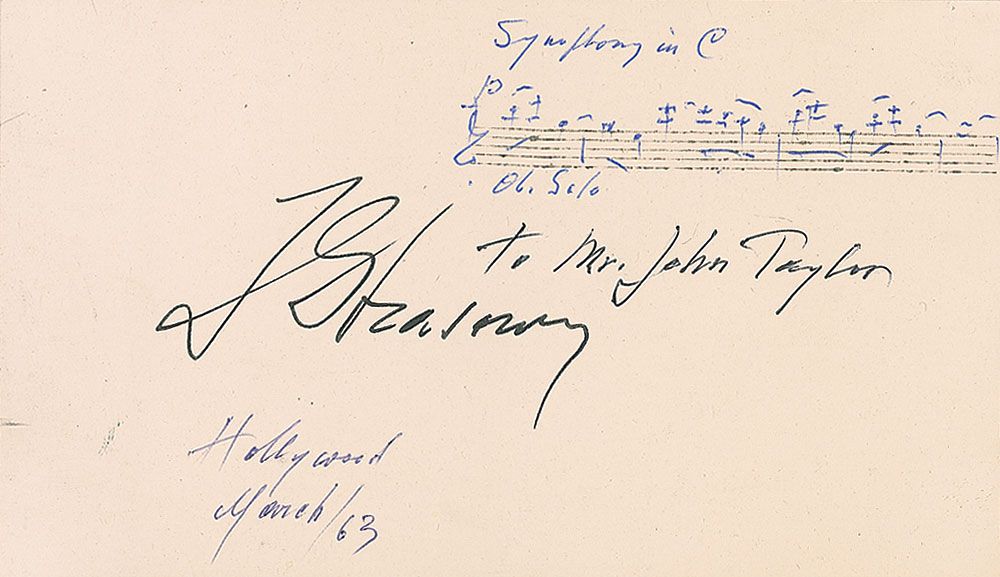 Symphony in C
Ob. Solo
to Mr. John Taylor
I Strawinsky
Hollywood
March/63